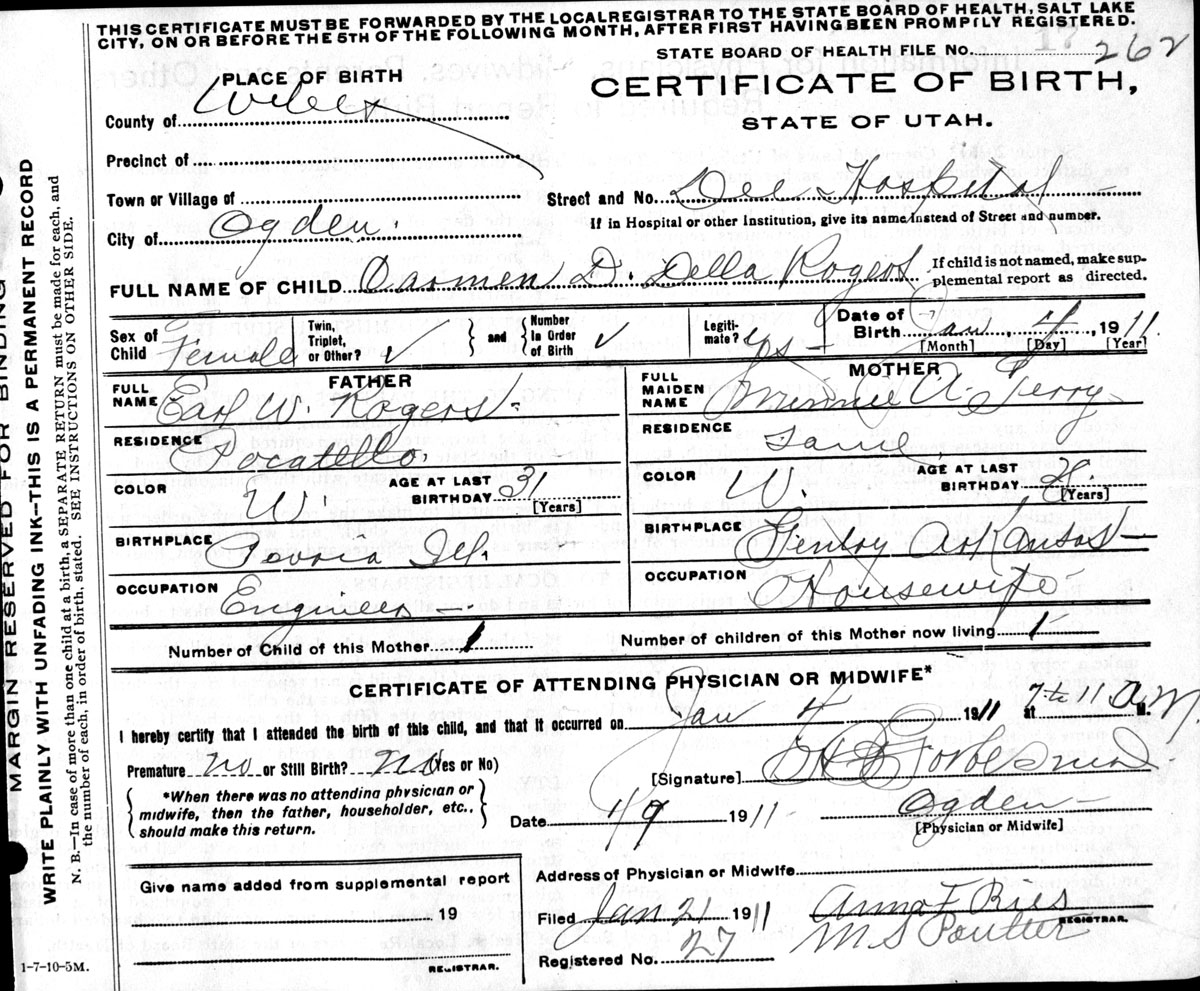 THIS CERTIFICATE MUST BE FORWARDED BY THE LOCAL REGISTRAR TO THE STATE BOARD OF HEALTH, SALT LAKE
CITY, ON OR BEFORE THE 5TH OF THE FOLLOWING MONTH, AFTER FIRST HAVING BEEN PROMPTLY REGISTERED.
STATE BOARD OF HEALTH FILE No. 262
PLACE OF BIRTH
CERTIFICATE OF BIRTH,
STATE OF UTAH.
County of Weber
Precinct of
Town or Village of
Street and No. Dee Hospital
If in Hospital or other Institution, give its name instead of Street and number.
City of Ogden.
FULL NAME OF CHILD Carmen D. Della Rogers
If child is not named, make sup-
plemental report as directed.
Sex of Child Female
Twin, Triplet, or Other? ✓ and Number In Order of Birth ✓
Legiti-mate? yes
Date of Birth Jan 4 1911.
[Month] [Day] [Year]
FATHER
FULL NAME Earl W. Rogers.
RESIDENCE Pocatello.
COLOR W. AGE AT LAST BIRTHDAY 31
[Years]
BIRTHPLACE Peoria Ill.
OCCUPATION Engineer
MOTHER
FULL MAIDEN NAME Minnie A. Terry
RESIDENCE Same.
COLOR W. AGE AT LAST BIRTHDAY
[Years]
BIRTHPLACE Gentry Arkansas
OCCUPATION Housewife
Number of Child of this Mother 1
Number of children of this Mother now living 1
CERTIFICATE OF ATTENDING PHYSICIAN OR MIDWIFE*
I hereby certify that I attended the birth of this child, and that it occurred on Jan 4 1911 at 7 to 11 A.M.
Premature no or Still Birth? no (Yes or No)
[Signature] Forbes
*When there was no attending physician or
midwife, then the father, householder, etc.,
should make this return.
Date 1/9 1911
Ogden
[Physician or Midwife]
Give name added from supplemental report
19
REGISTRAR.
Address of Physician or Midwife
Filed Jan 21 1911 Anna F Ries
REGISTRAR.
Registered No. 27 M S Poulter
1-7-10-5M.
MARGIN RESERVED FOR BINDING
WRITE PLAINLY WITH UNFADING INK—THIS IS A PERMANENT RECORD
N. B.—In case of more than one child at a birth, a SEPARATE RETURN must be made for each, and
the number of each, in order of birth, stated. SEE INSTRUCTIONS ON OTHER SIDE.